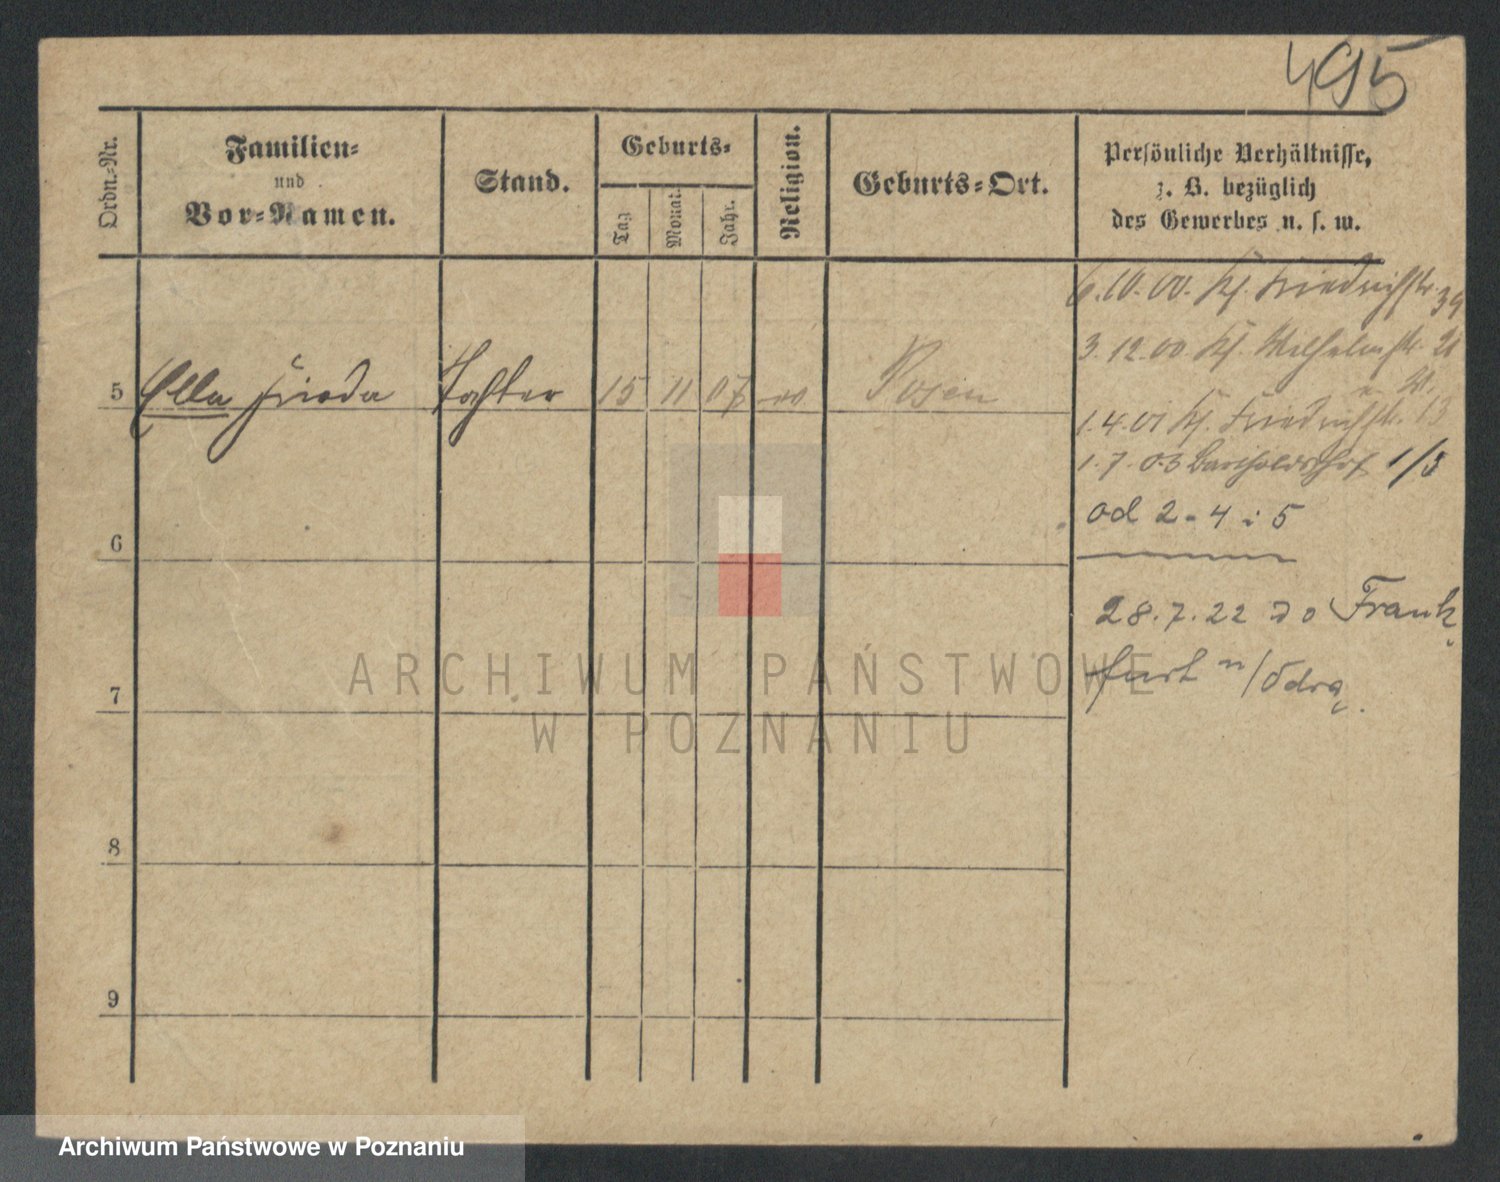 495
Ordn.-Nr.
Familien-
und
Vor-Namen.
Stand.
Geburts-
Tag
Monat.
Jahr.
Religion.
Geburts-Ort.
Persönliche Verhältnisse,
z. B. bezüglich
des Gewerbes u. s. w.
6.10.00. Friedrichstr. 39
3.12.00 Wilhelmstr. 21
5 Ella Frieda Tochter 15 11 07 Posen
1.4.01 Friedrichstr. 13
1.7.03 Bartholdshof 1/3
od 2-4 i 5
6
28.7.22 do Frank
furt n/Odrą.
7
8
9
ARCHIWUM PAŃSTWOWE
W POZNANIU
Archiwum Państwowe w Poznaniu